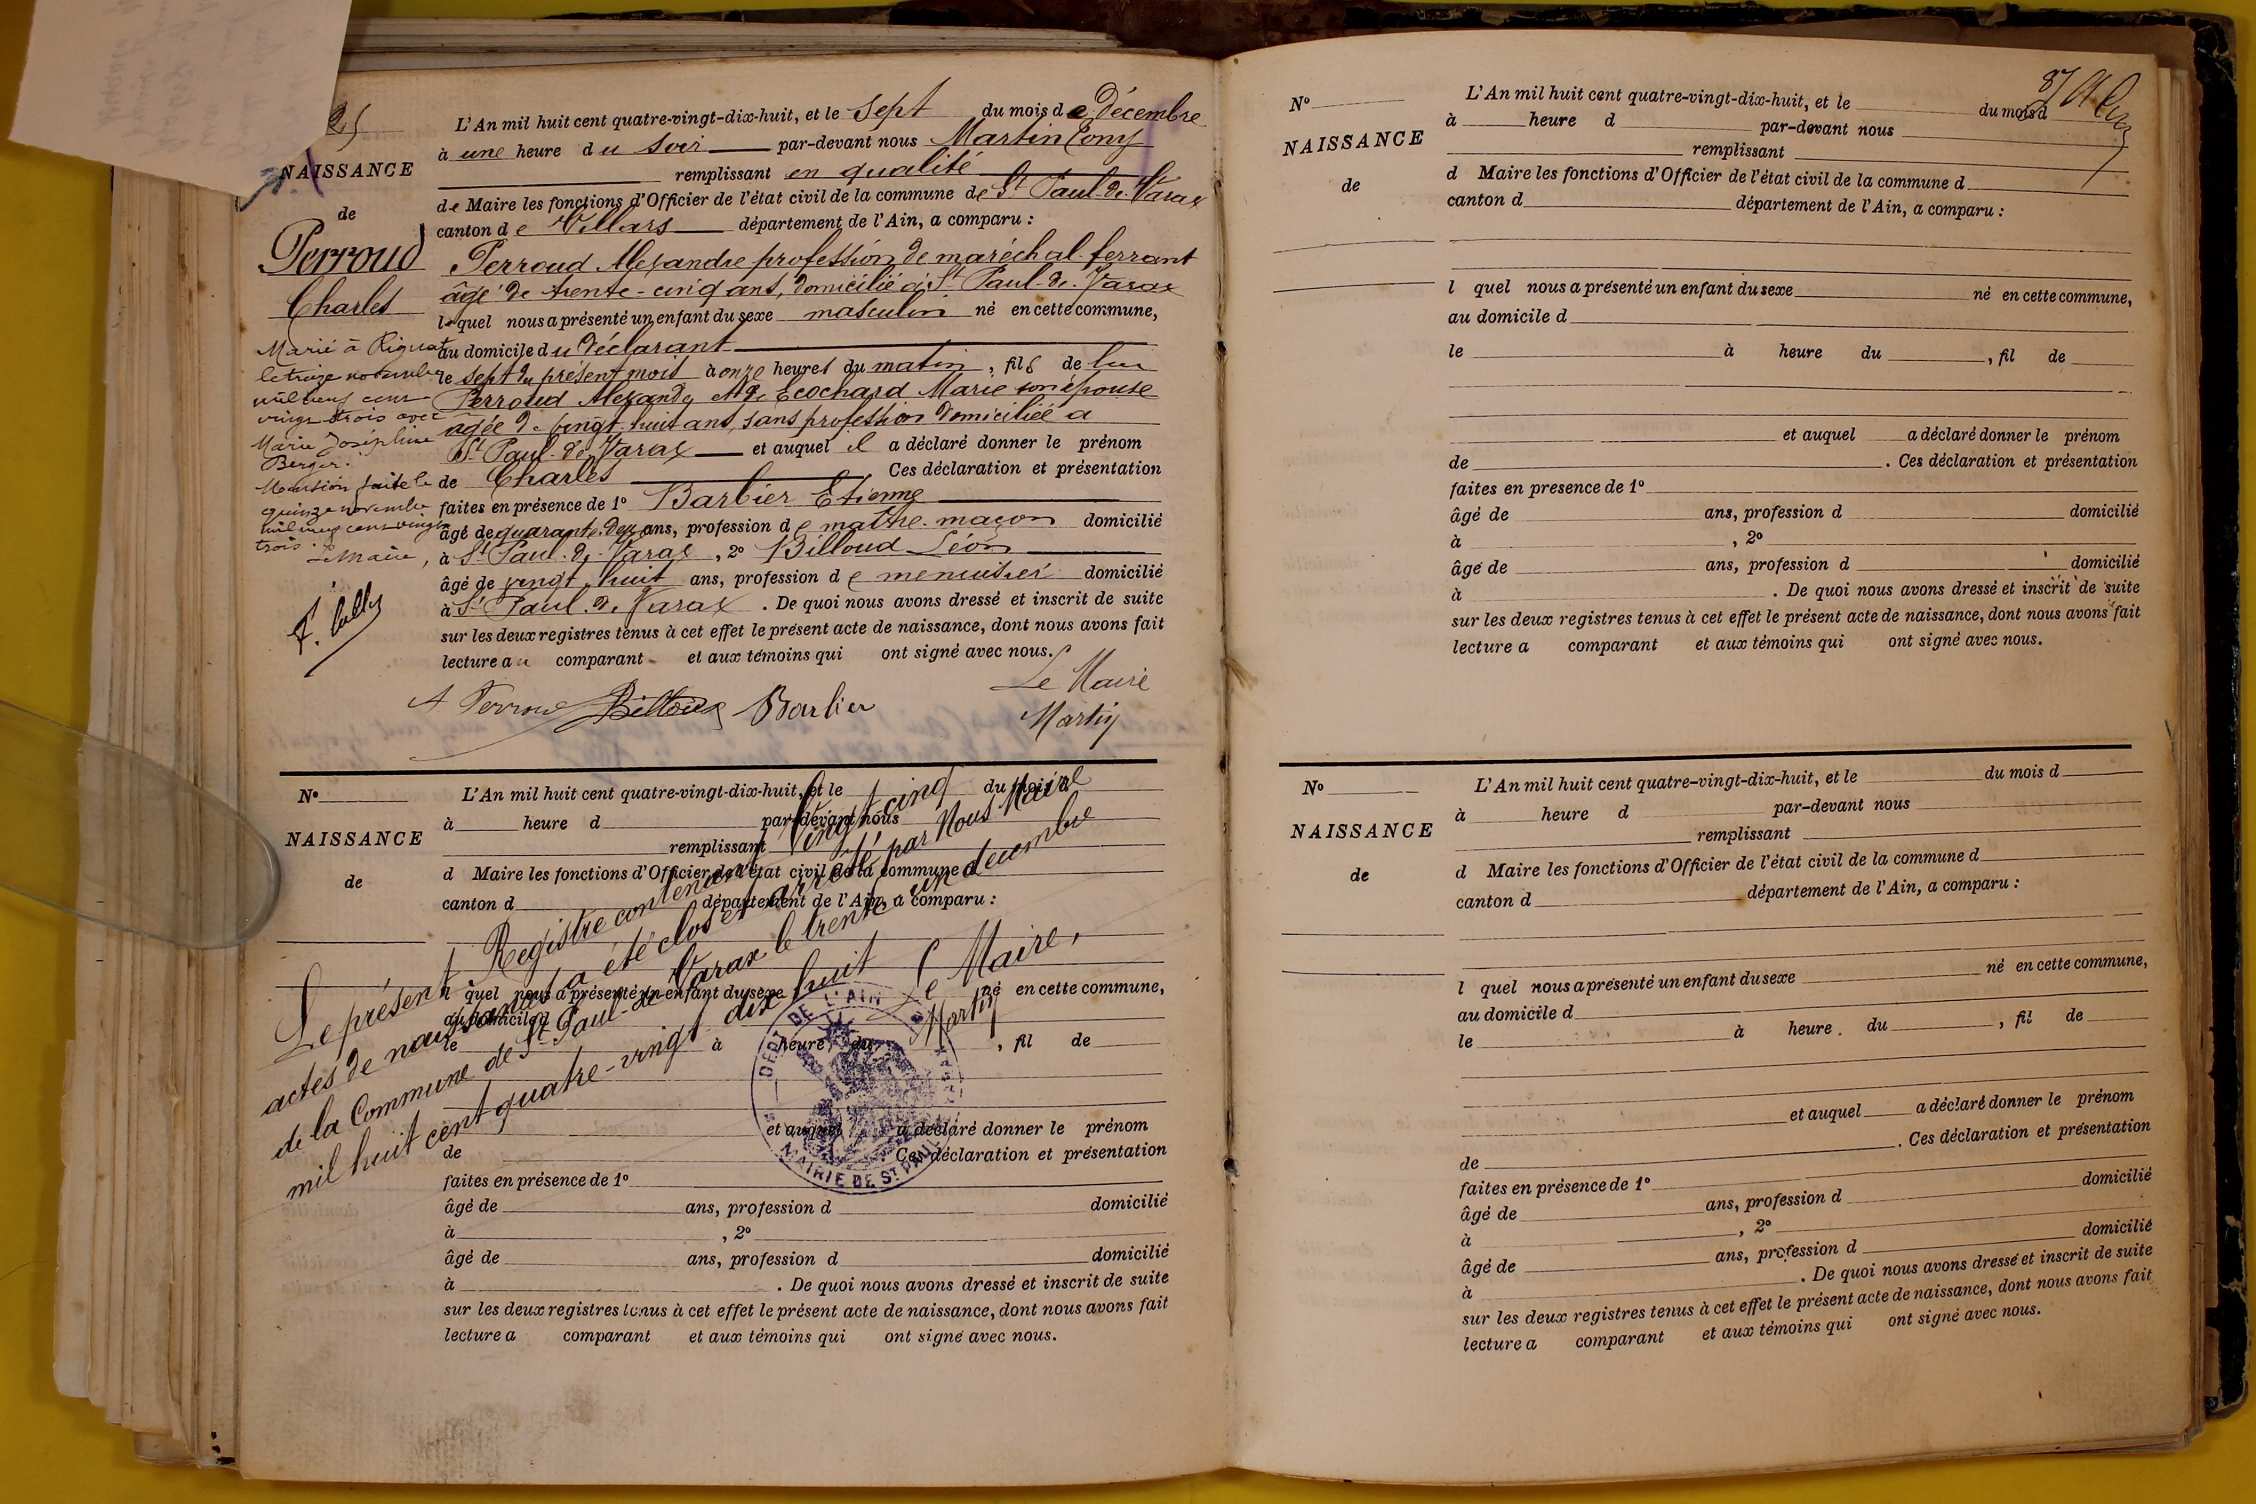 25
NAISSANCE
de
Perroud
Charles
Marié à
le treize novembre
mil neuf cent
vingt trois avec
Marie Joséphine
Berger.
Mention faite le
quinze novembre
mil neuf cent vingt
trois.
Le Maire,
L'An mil huit cent quatre-vingt-dix-huit, et le sept du mois de Décembre
à une heure du soir par-devant nous Martin Tony
remplissant en qualité
de Maire les fonctions d'Officier de l'état civil de la commune de St Paul-de-Varax
canton de Villars département de l'Ain, a comparu :
Perroud Alexandre profession de maréchal-ferrant
âgé de trente-cinq ans, domicilié à St Paul-de-Varax
lequel nous a présenté un enfant du sexe masculin né en cette commune,
au domicile du déclarant
le sept du présent mois à onze heures du matin, fils de lui
Perroud Alexandre et de Ecochard Marie son épouse
âgée de vingt-huit ans, sans profession domiciliée à
St Paul-de-Varax et auquel il a déclaré donner le prénom
de Charles Ces déclaration et présentation
faites en présence de 1° Barbier Etienne
âgé de quarante-deux ans, profession de maître-maçon domicilié
à St Paul-de-Varax, 2° Billoud Léon
âgé de vingt-huit ans, profession de menuisier domicilié
à St Paul-de-Varax. De quoi nous avons dressé et inscrit de suite
sur les deux registres tenus à cet effet le présent acte de naissance, dont nous avons fait
lecture au comparant et aux témoins qui ont signé avec nous.
A Perroud Billoud Barbier
Le Maire
Martin
N°
NAISSANCE
de
L'An mil huit cent quatre-vingt-dix-huit, et le du mois d
à heure d par-devant nous
remplissant
d Maire les fonctions d'Officier de l'état civil de la commune d
canton d département de l'Ain, a comparu :
l quel nous a présenté un enfant du sexe né en cette commune,
au domicile d
le à heure du , fil de
et auquel a déclaré donner le prénom
de . Ces déclaration et présentation
faites en présence de 1°
âgé de ans, profession d domicilié
à , 2°
âgé de ans, profession d domicilié
à . De quoi nous avons dressé et inscrit de suite
sur les deux registres tenus à cet effet le présent acte de naissance, dont nous avons fait
lecture a comparant et aux témoins qui ont signé avec nous.
Le présent Registre contenant Vingt cinq
actes de naissances a été clos et arrêté par Nous Maire
de la Commune de St Paul-de-Varax le trente un décembre
mil huit cent quatre-vingt dix huit
Le Maire,
Martin
DEPT DE L'AIN
MAIRIE DE ST PAUL DE VARAX
87
N°
NAISSANCE
de
L'An mil huit cent quatre-vingt-dix-huit, et le du mois d
à heure d par-devant nous
remplissant
d Maire les fonctions d'Officier de l'état civil de la commune d
canton d département de l'Ain, a comparu :
l quel nous a présenté un enfant du sexe né en cette commune,
au domicile d
le à heure du , fil de
et auquel a déclaré donner le prénom
de . Ces déclaration et présentation
faites en presence de 1°
âgé de ans, profession d domicilié
à , 2°
âgé de ans, profession d domicilié
à . De quoi nous avons dressé et inscrit de suite
sur les deux registres tenus à cet effet le présent acte de naissance, dont nous avons fait
lecture a comparant et aux témoins qui ont signé avec nous.
N°
NAISSANCE
de
L'An mil huit cent quatre-vingt-dix-huit, et le du mois d
à heure d par-devant nous
remplissant
d Maire les fonctions d'Officier de l'état civil de la commune d
canton d département de l'Ain, a comparu :
l quel nous a présenté un enfant du sexe né en cette commune,
au domicile d
le à heure du , fil de
et auquel a déclaré donner le prénom
de . Ces déclaration et présentation
faites en présence de 1°
âgé de ans, profession d domicilié
à , 2°
âgé de ans, profession d domicilié
à . De quoi nous avons dressé et inscrit de suite
sur les deux registres tenus à cet effet le présent acte de naissance, dont nous avons fait
lecture a comparant et aux témoins qui ont signé avec nous.